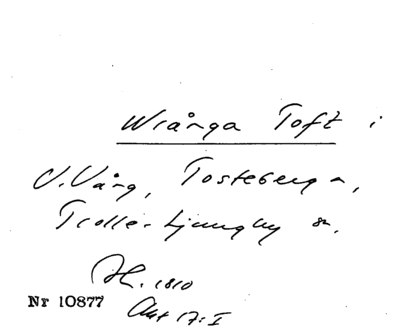 Wrånga Toft i
V. Vång, Tosteberga,
Trolle-Ljungby sn.
LH. 1810
Nr 10877
Akt 17:I